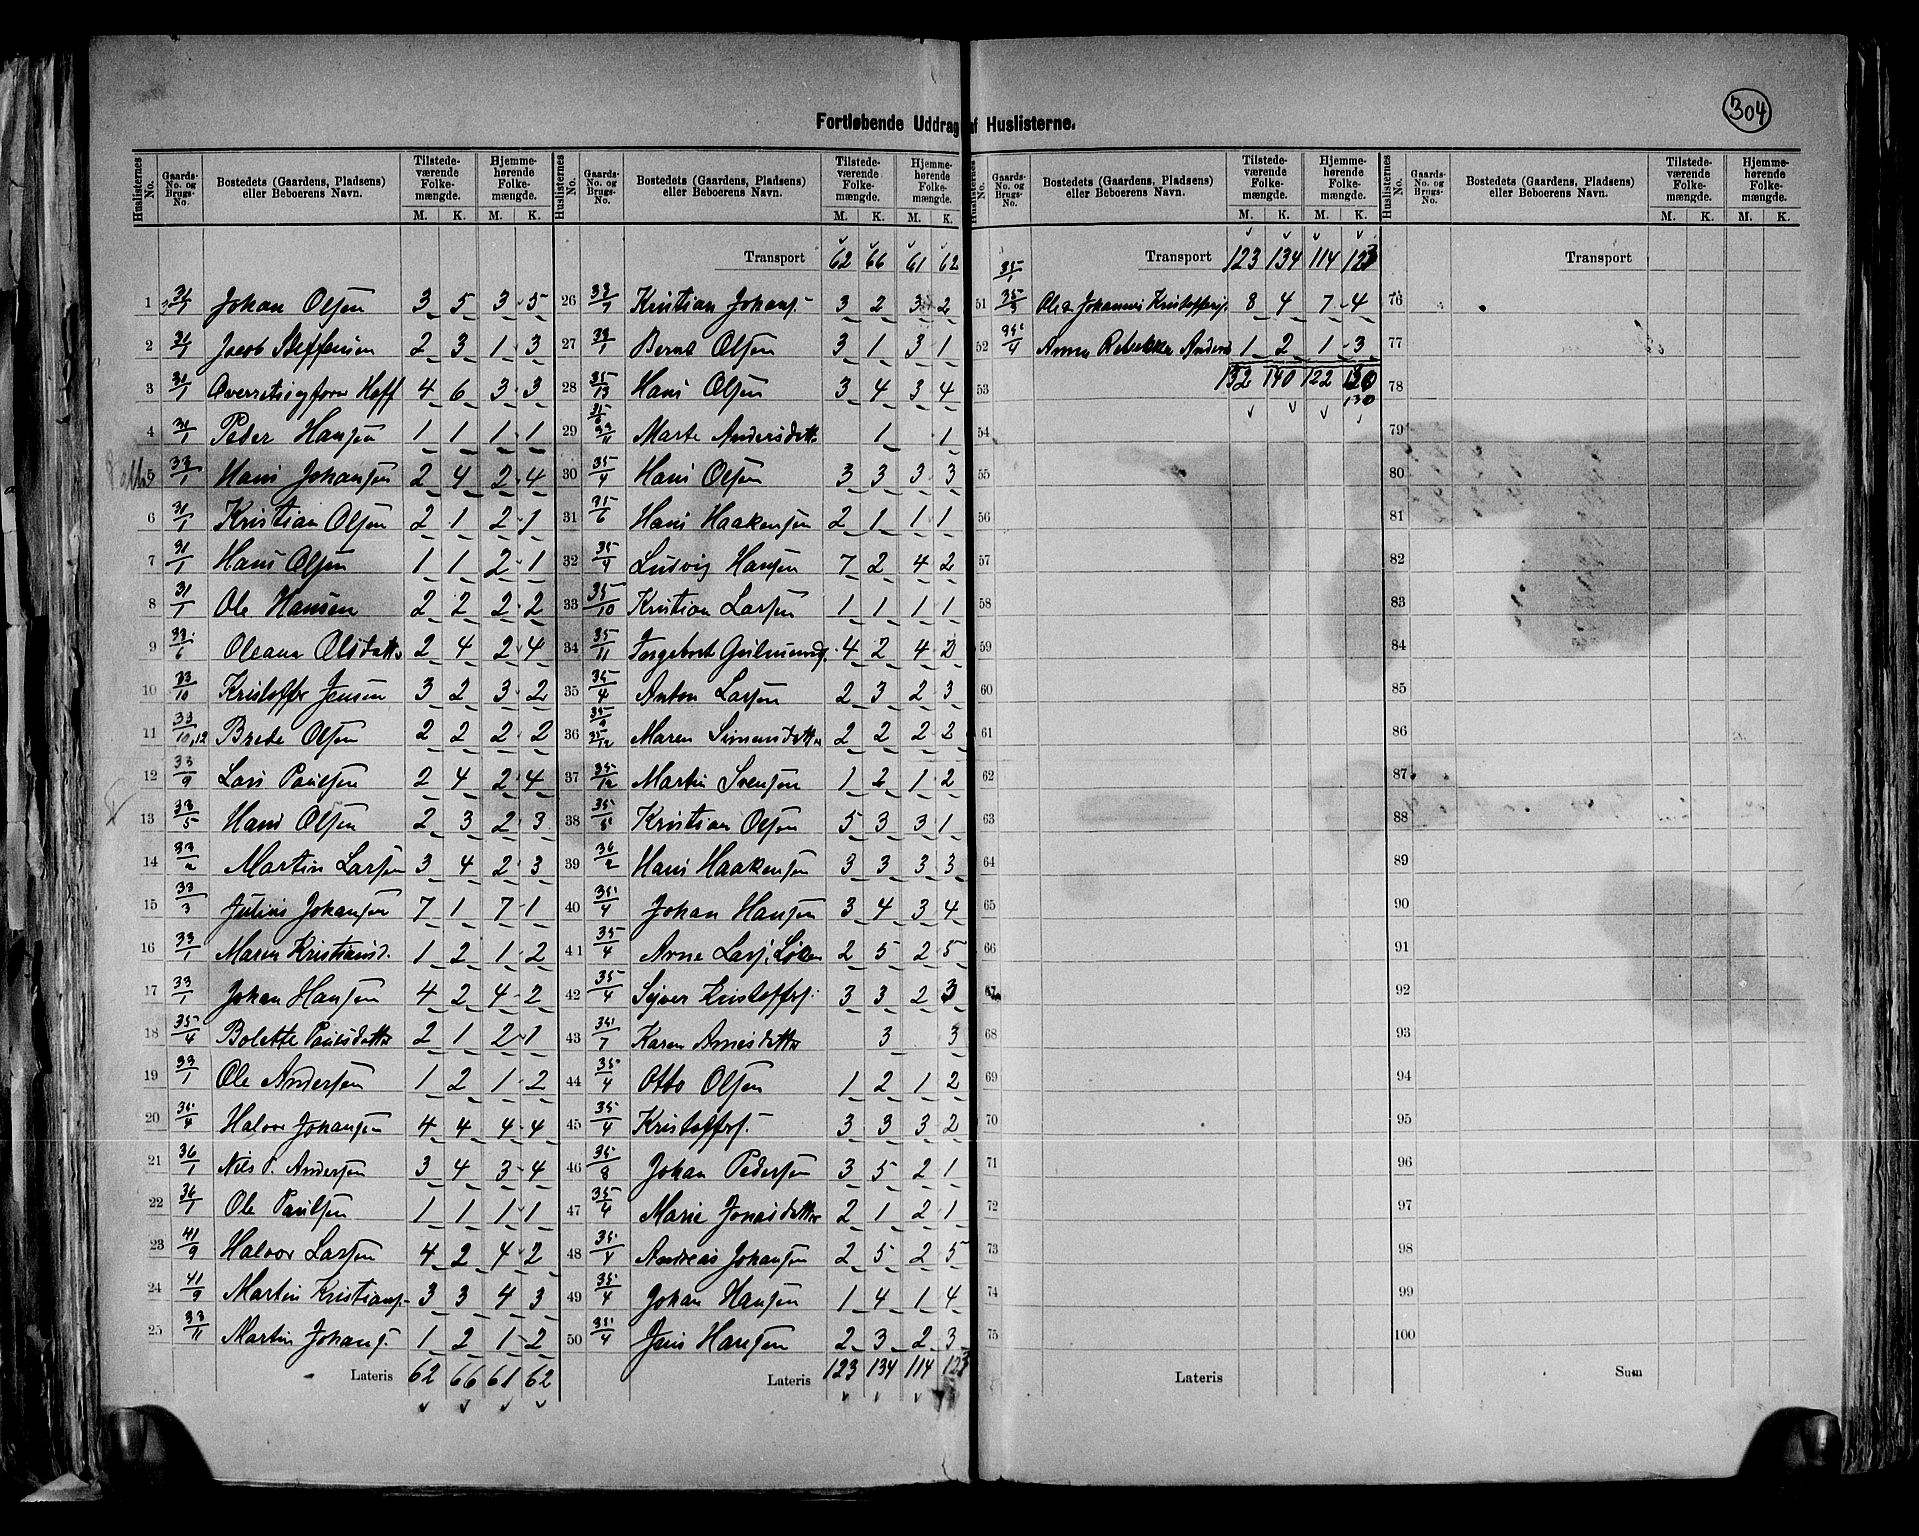 304
Fortløbende Uddrag af Huslisterne.
Huslisternes No. Gaards-No. og Brugs-No. Bostedets (Gaardens, Pladsens) eller Beboerens Navn. Tilstedeværende Folkemængde. M. K. Hjemmehørende Folkemængde. M. K.
1 31/1 Johan Olsen 3 5 3 5
2 31/1 Jacob Steffensen 2 3 1 3
3 31/1 Overretssagfører Hoff 4 6 3 3
4 31/1 Peder Hansen 1 1 1 1
5 33/1 Hans Johansen 2 4 2 4
6 31/1 Kristian Olsen 2 1 2 1
7 31/1 Hans Olsen 1 1 2 1
8 31/1 Ole Hansen 2 2 2 2
9 33/6 Oleana Olsdatter 2 4 2 4
10 33/10 Kristoffer Jensen 3 2 3 2
11 33/10,12 Brede Olsen 2 2 2 2
12 33/9 Lars Paulsen 2 4 2 4
13 33/5 Hans Olsen 2 3 2 3
14 33/2 Martin Larsen 3 4 2 3
15 33/3 Julius Johansen 7 1 7 1
16 33/1 Maren Kristiansd. 1 2 1 2
17 33/1 Johan Hansen 4 2 4 2
18 35/4 Bolette Paulsdatter 2 1 2 1
19 33/1 Ole Andersen 1 2 1 2
20 35/4 Halvor Johansen 4 4 4 4
21 36/1 Nils P. Andersen 3 4 3 4
22 36/1 Ole Paulsen 1 1 1 1
23 41/9 Halvor Larsen 4 2 4 2
24 41/9 Martin Kristians. 3 3 4 3
25 33/11 Martin Johans. 1 2 1 2
Lateris 62 66 61 62
Huslisternes No. Gaards-No. og Brugs-No. Bostedets (Gaardens, Pladsens) eller Beboerens Navn. Tilstedeværende Folkemængde. M. K. Hjemmehørende Folkemængde. M. K.
Transport 62 66 61 62
26 33/7 Kristian Johans. 3 2 3 2
27 33/1 Bernt Olsen 3 1 3 1
28 35/13 Hans Olsen 3 4 3 4
29 33/11 Marte Andersdatter 1 1
30 35/4 Hans Olsen 3 3 3 3
31 35/6 Hans Haakensen 2 1 1 1
32 35/4 Ludvig Hansen 7 2 4 2
33 35/10 Kristian Larsen 1 1 1 1
34 35/11 4 2 4 2
35 35/4 Anton Larsen 2 3 2 3
36 35/12 Maren Simensdatter 2 2 2 2
37 35/12 Martin Svensen 1 2 1 2
38 Kristian Olsen 5 3 3 1
39 36/2 Hans Haakensen 3 3 3 3
40 35/4 Johan Hansen 3 4 3 4
41 35/4 Arne Lars. Løken 2 5 2 5
42 35/4 Syver Kristoffers. 3 3 2 3
43 35/7 Karen Arnesdatter 3 3
44 35/4 Otto Olsen 1 2 1 2
45 35/4 Kristoffers. 3 3 3 2
46 35/8 Johan Pedersen 3 5 2 1
47 35/4 Marie Jonasdatter 2 1 2 1
48 35/4 Andreas Johansen 2 5 2 5
49 35/4 Johan Hansen 1 4 1 4
50 35/4 Jens Hansen 2 3 2 3
Lateris 123 134 114 123
Huslisternes No. Gaards-No. og Brugs-No. Bostedets (Gaardens, Pladsens) eller Beboerens Navn. Tilstedeværende Folkemængde. M. K. Hjemmehørende Folkemængde. M. K.
Transport 123 134 114 123
35/1
51 35/3 Ole Johannes Kristoffers. 8 4 7 4
52 35/4 Anna Rebekka Anders 1 2 1 3
53 132 140 122 130
130
54
55
56
57
58
59
60
61
62
63
64
65
66
67
68
69
70
71
72
73
74
75
Lateris
Huslisternes No. Gaards-No. og Brugs-No. Bostedets (Gaardens, Pladsens) eller Beboerens Navn. Tilstedeværende Folkemængde. M. K. Hjemmehørende Folkemængde. M. K.
76
77
78
79
80
81
82
83
84
85
86
87
88
89
90
91
92
93
94
95
96
97
98
99
100
Sum